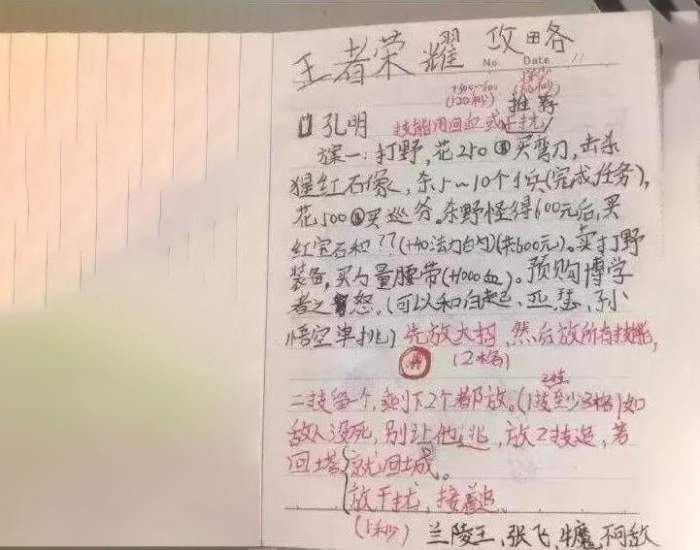 王者荣耀 攻略
No. Date
+500~600
(120秒) (60秒)
推荐
孔明 技能用回血或干扰
法一:打野,花250买弯刀,击杀
猩红石像,杀5~10个小兵(完成任务),
花500买巡爷。杀野怪得600元后,买
红宝石和??(+40法力)(共600元)。卖打野
装备,买力量腰带(+1000血)。预购博学
者之怒。(可以和白起、亚瑟、孙
悟空单挑)先放大招,然后放所有技能,
(2格)
2技
二技留一个,剩下2个都放。(1技至少3格)如
敌人没死,别让他逃,放2技追,若
回塔就回城。
放干扰,接着追。
(1秒) 兰陵王、张飞、牛魔、阿敌